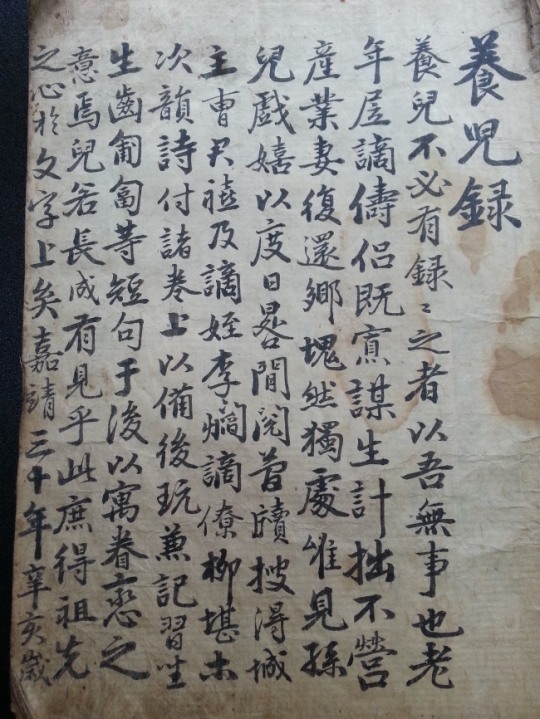 養兒録
養兒不必有録〻之者以吾無事也老
年居謫儔侣既寡謀生計拙不營
産業妻復還鄉塊然獨處唯見孫
兒戲嬉以度日晷閒閱曽牘搜得城
主曹君禧及謫姪李爓謫僚柳堪
次韻詩付諸卷上以備後玩兼記習坐
生齒匍匐等短句于後以寓眷戀之
意焉兒若長成有見乎此庶得祖先
之心於文字上矣嘉靖三十年辛亥歲